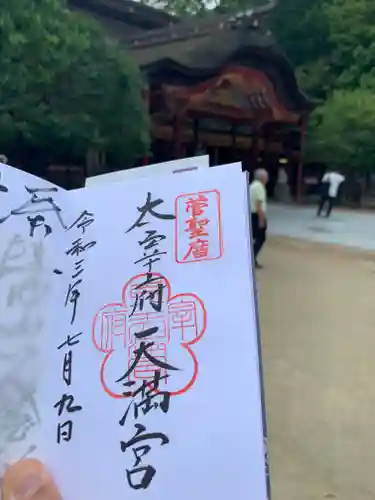 菅聖庿
太宰府天満宮
令和三年七月九日